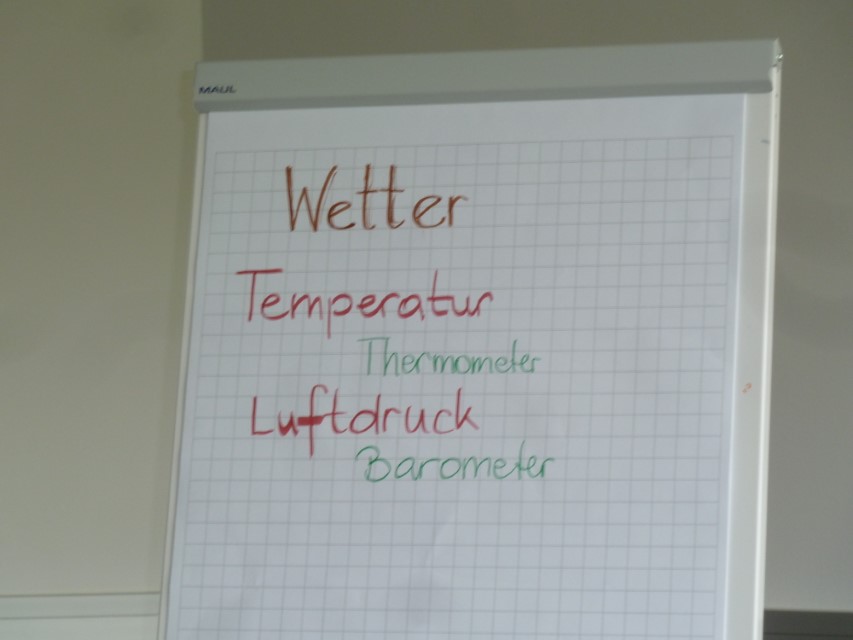 MAUL
Wetter
Temperatur
Thermometer
Luftdruck
Barometer